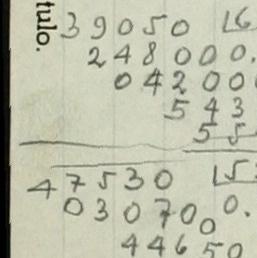 tulo.
39050 16
248000.
04200
543
55
47530 15
030700 0.
44650